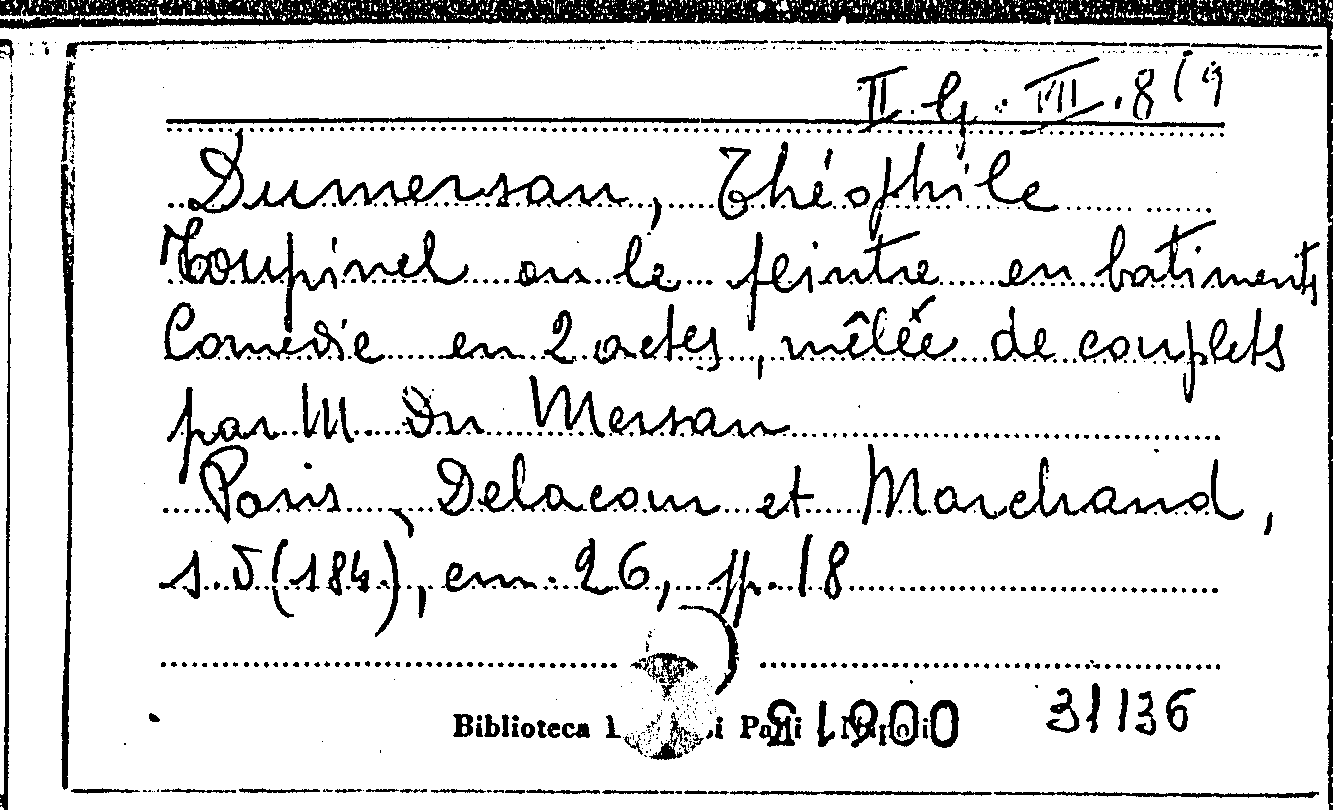 II. G. VII. 8/9
Dumersan, Théophile
Toupinel ou le peintre en batiments
Comédie en 2 actes, mêlée de couplets
par M. Du Mersan
Paris, Delacour et Marchand,
s.d (184.), cm. 26, pp. 18
Biblioteca
31136